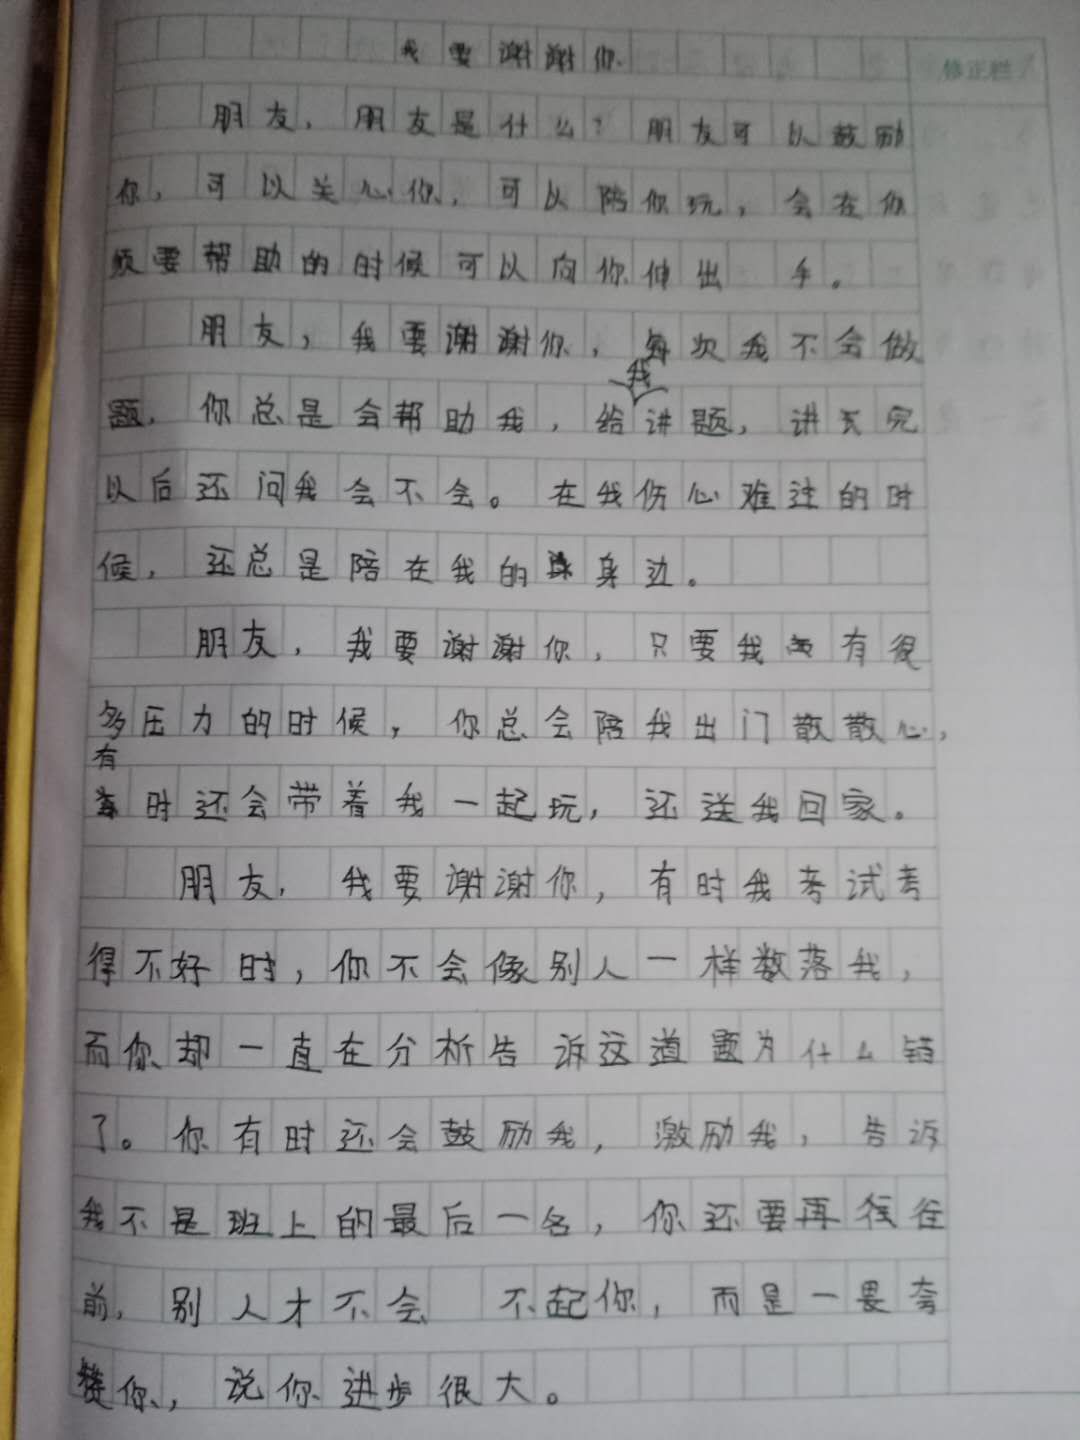 我要谢谢你
修正栏
朋友，朋友是什么？朋友可以鼓励
你，可以关心你，可以陪你玩，会在你
须要帮助的时候可以向你伸出 手。
朋友，我要谢谢你，每次我不会做
题，你总是会帮助我，给我讲题，讲完
以后还问我会不会。在我伤心难过的时
候，还总是陪在我的身边。
朋友，我要谢谢你，只要我有很
多压力的时候，你总会陪我出门散散心，
有时还会带着我一起玩，还送我回家。
朋友，我要谢谢你，有时我考试考
得不好时，你不会像别人一样数落我，
而你却一直在分析告诉这道题为什么错
了。你有时还会鼓励我，激励我，告诉
我不是班上的最后一名，你还要再往往
前，别人才不会 不起你，而是一畏夸
你，说你进步很大。